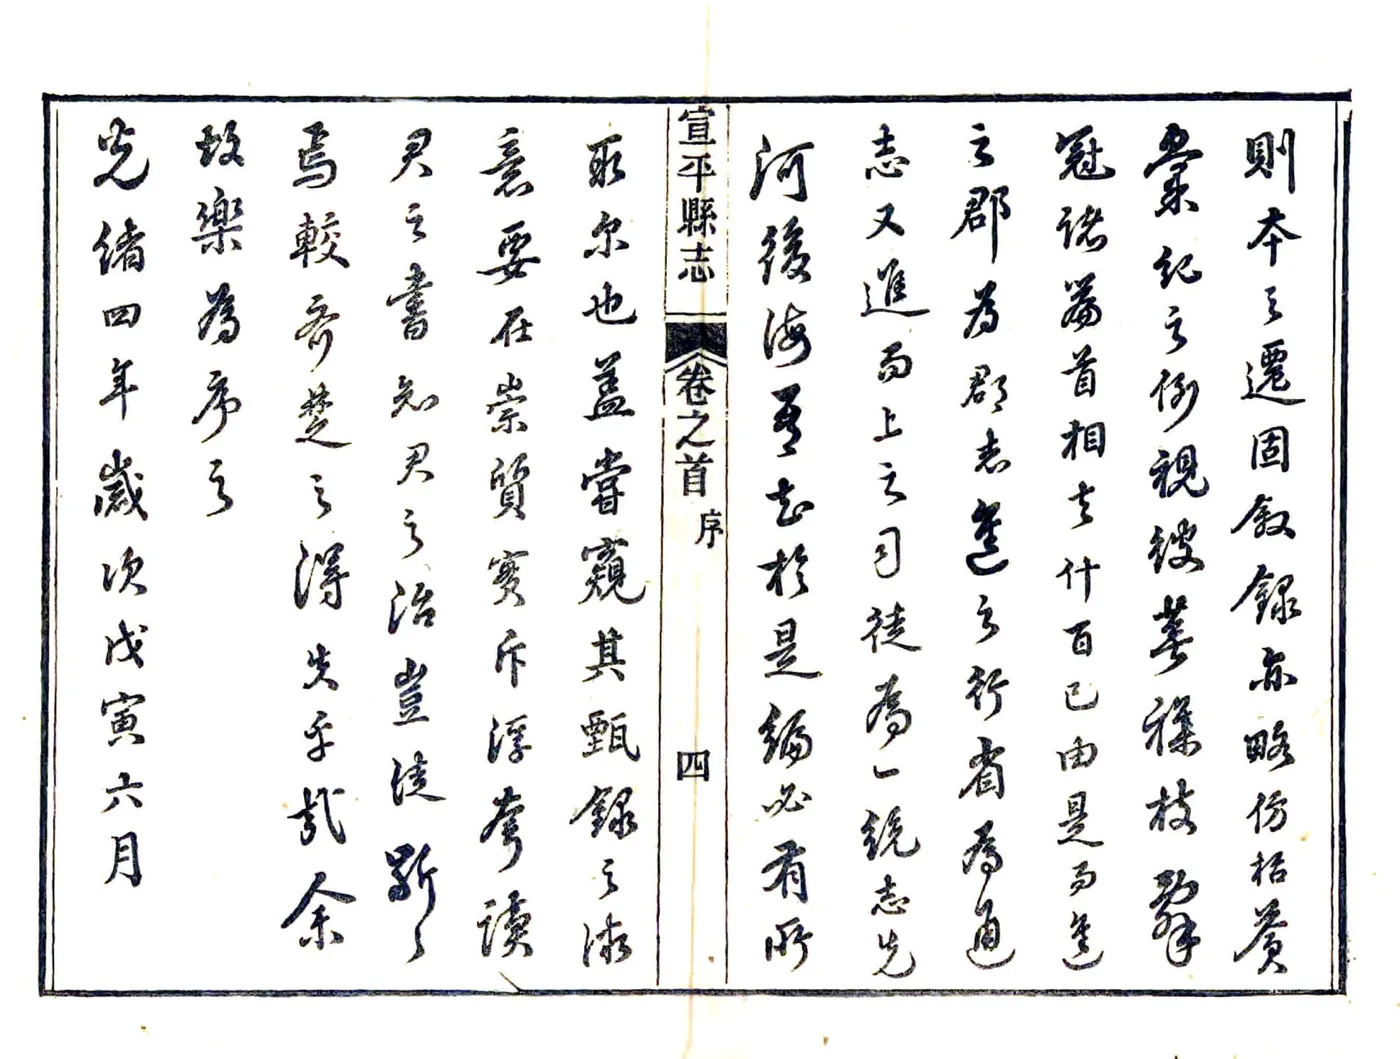 則本之遷固敘錄亦略仿拾蕢
彙紀之例視彼蕪穢枝辭
冠諸篇首相去什百已由是而進
之郡為郡志進之行省為通
志又進而上之司徒為一統志先
河後海吾知於是編必有所
取尔也蓋嘗窺其甄錄之
意要在崇質實斥浮夸讀
君之書知君之治豈徒斷斷
焉較齐楚之得失乎哉余
故樂為序之
光緒四年歲次戊寅六月
宣平縣志
卷之首
序
四